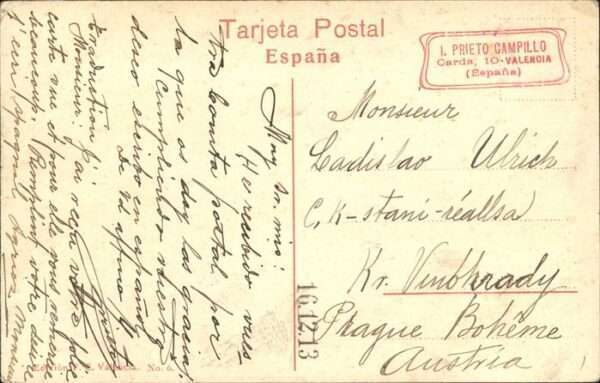 Tarjeta Postal
España
I. PRIETO CAMPILLO
Carda, 10-VALENCIA
(España)
Muy Sr. mio:
He recibido vues-
tra bonita postal por
la que os doy las gracias,
Cumpliendo vuestro
deseo escribo en español
De Vd affmo
Traduction
Monsieur: J'ai reçu votre jolie
carte vue et pour elle vous remercie
beaucoup. Remplint votre desire
j'ecri espagnol. Agréez Monsieur
Monsieur
Ladislao Ulrich
C, K-stani-réallsa
Kr. Vinohrady
Prague Bohême
Austria
16.12.13
Edición Valencia. No. 6.